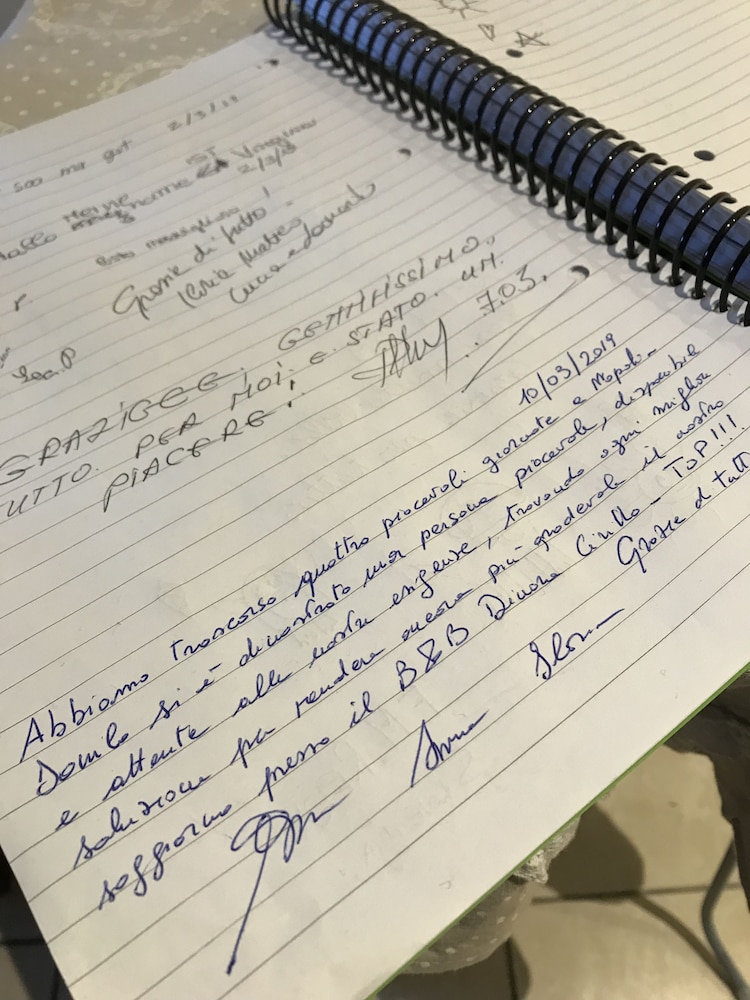 500 mt gut 2/3/19
Hallo Meine name ST
2/3/19
Grazie di tutto
GRAZIGEE. GENTILISSIMO.
TUTTO. PER MOI. E STATO. UN.
PIACERE. 7.03.
10/03/2019
Abbiamo trascorso quattro piacevoli giornate a Napoli.
Danilo si è dimostrato una persona piacevole, disponibile
e attente alle nostre esigenze, trovando ogni miglior
soluzione per rendere ancora più gradevole il nostro
soggiorno presso il B&B Dimora Cirillo - TOP!!!
Grazie di tutto